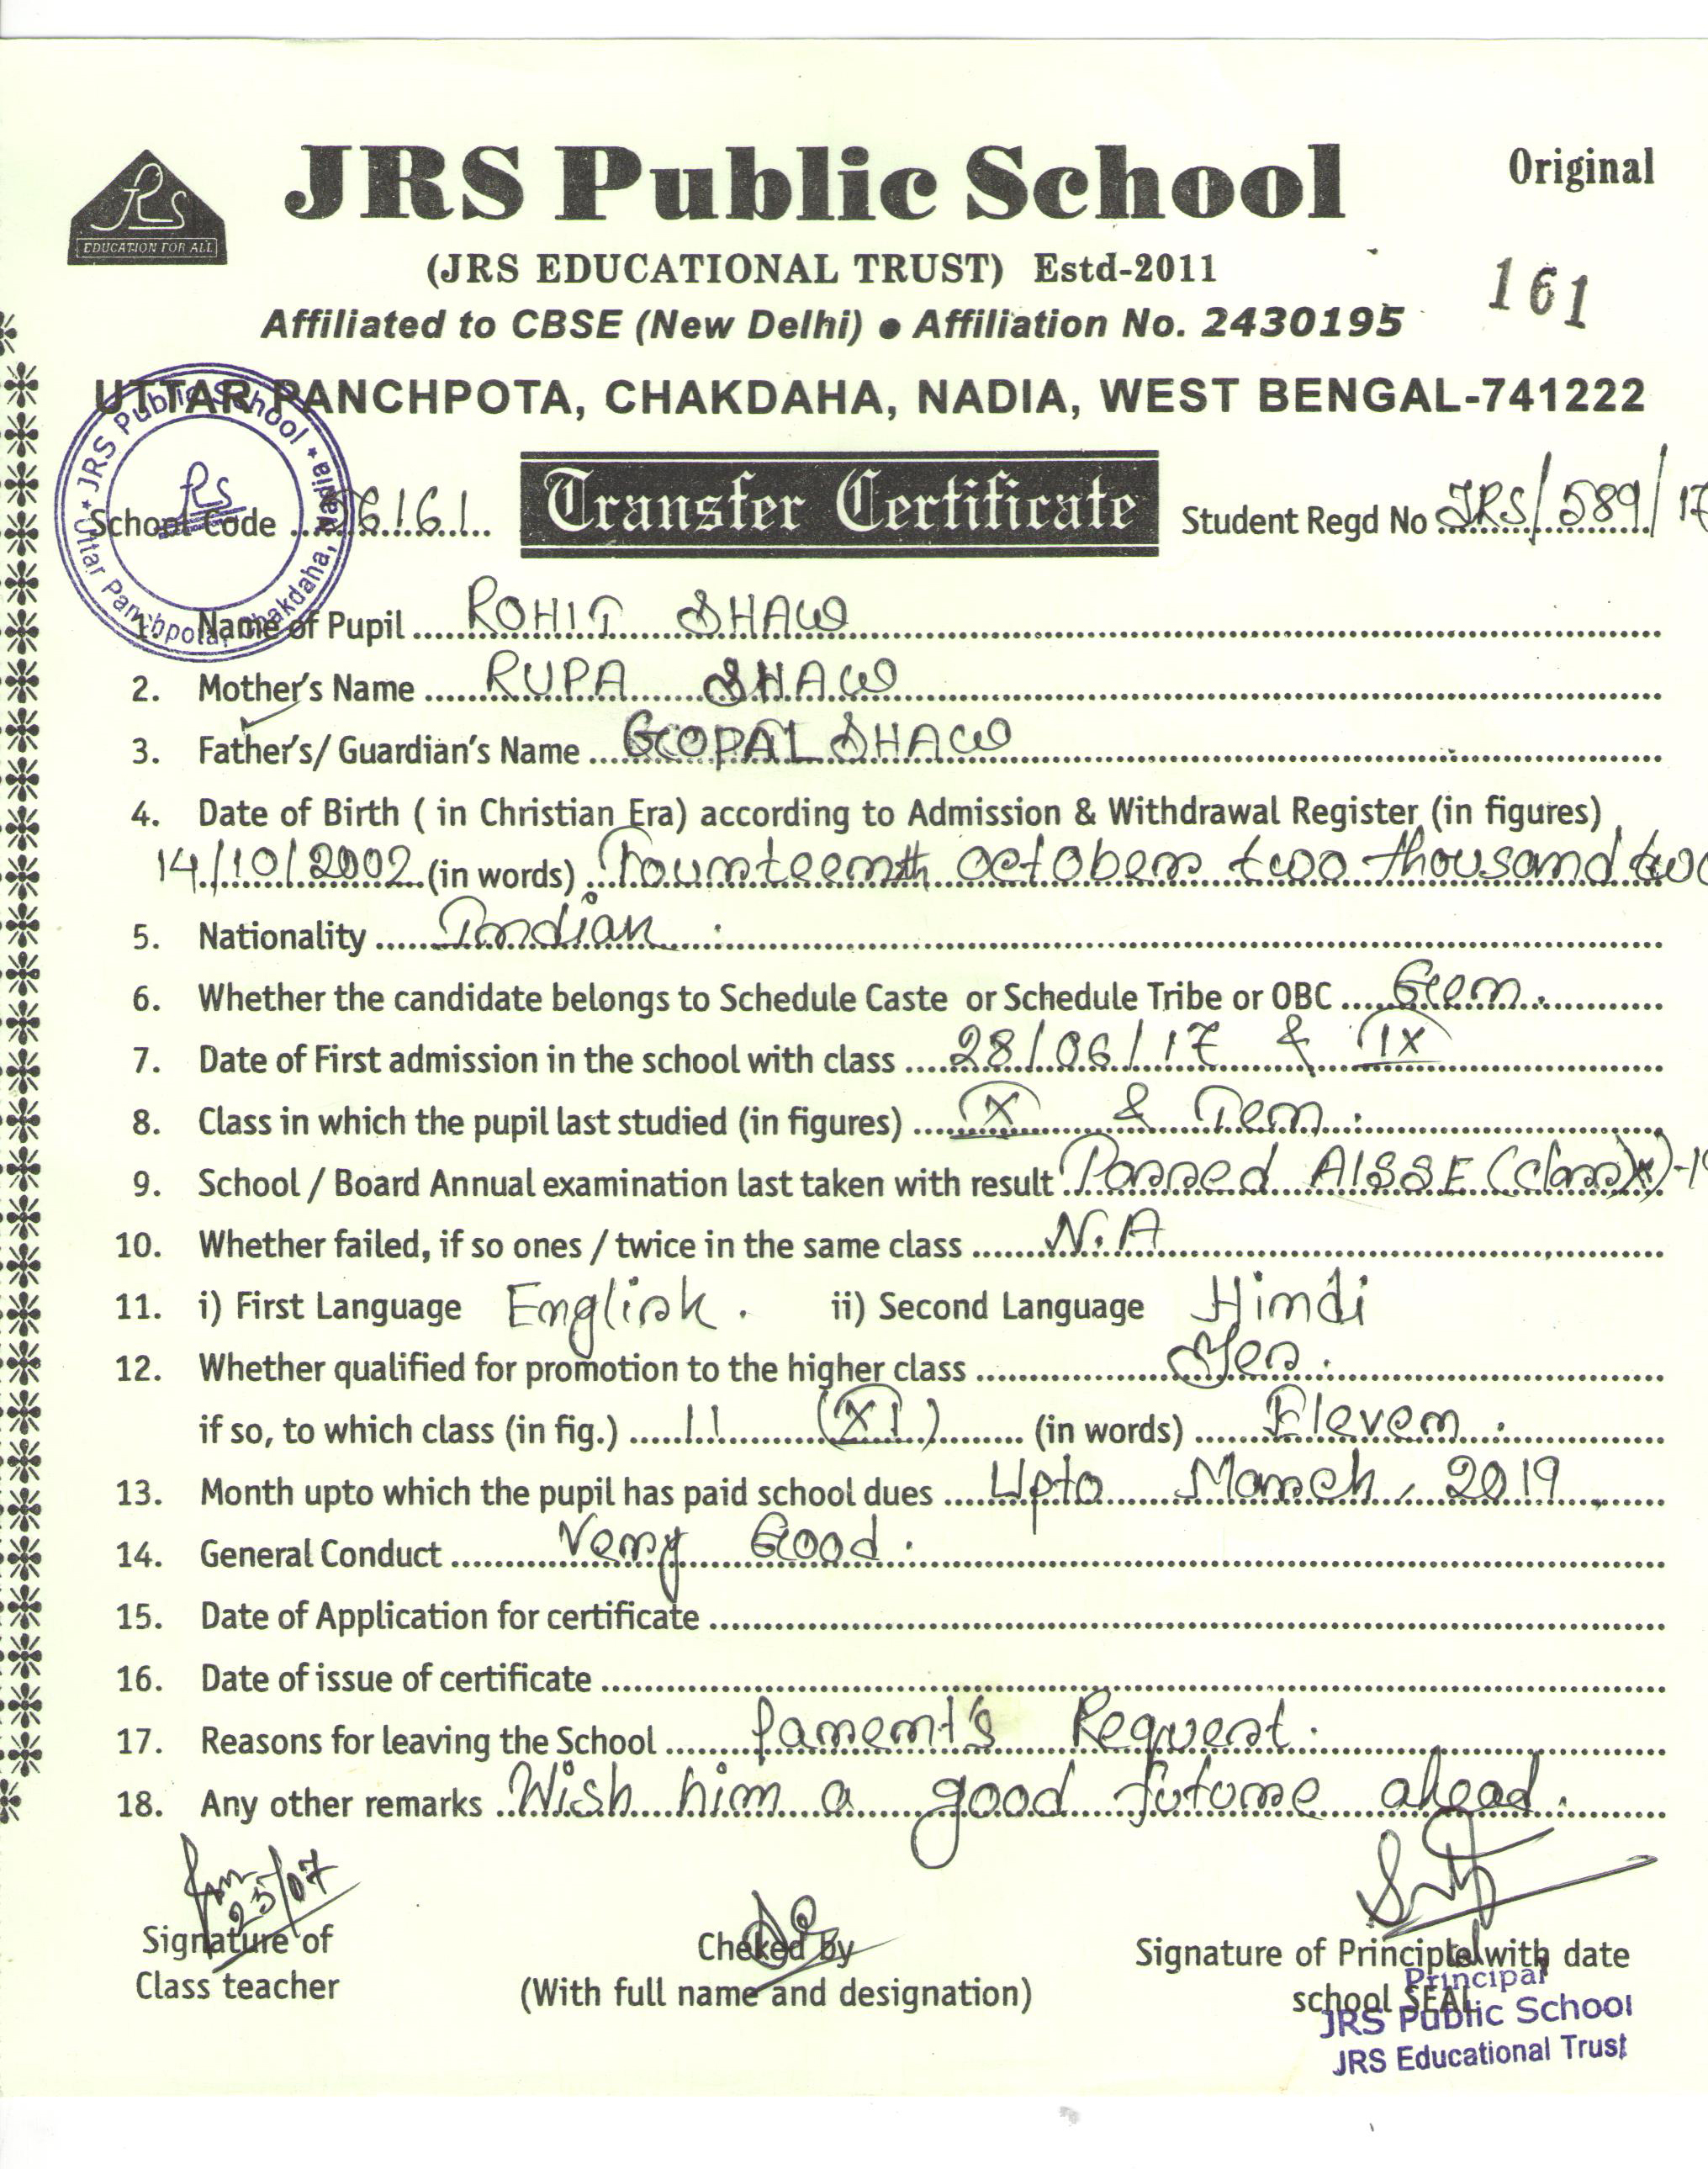 JRS Public School
Original
EDUCATION FOR ALL
(JRS EDUCATIONAL TRUST) Estd-2011
161
Affiliated to CBSE (New Delhi) ● Affiliation No. 2430195
UTTAR PANCHPOTA, CHAKDAHA, NADIA, WEST BENGAL-741222
JRS Public School * Uttar Panchpota, Chakdaha, Nadia *
School Code 6161
Transfer Certificate
Student Regd No JRS/589/17
1. Name of Pupil ROHIT SHAW
2. Mother's Name RUPA SHAW
3. Father's/ Guardian's Name GOPAL SHAW
4. Date of Birth ( in Christian Era) according to Admission & Withdrawal Register (in figures)
14/10/2002 (in words) Fourteenth october two thousand two
5. Nationality Indian
6. Whether the candidate belongs to Schedule Caste or Schedule Tribe or OBC Gen.
7. Date of First admission in the school with class 28/06/17 & IX
8. Class in which the pupil last studied (in figures) X & Ten.
9. School / Board Annual examination last taken with result Passed AISSE (class X)-19
10. Whether failed, if so ones / twice in the same class N.A
11. i) First Language English. ii) Second Language Hindi
12. Whether qualified for promotion to the higher class Yes.
if so, to which class (in fig.) 11 (XI) (in words) Eleven.
13. Month upto which the pupil has paid school dues Upto March, 2019
14. General Conduct Very Good.
15. Date of Application for certificate
16. Date of issue of certificate
17. Reasons for leaving the School Parent's Request.
18. Any other remarks Wish him a good future ahead.
25/07
Signature of
Class teacher
Cheked by
(With full name and designation)
Signature of Principle with date
school SEAL
Principal
JRS Public School
JRS Educational Trust